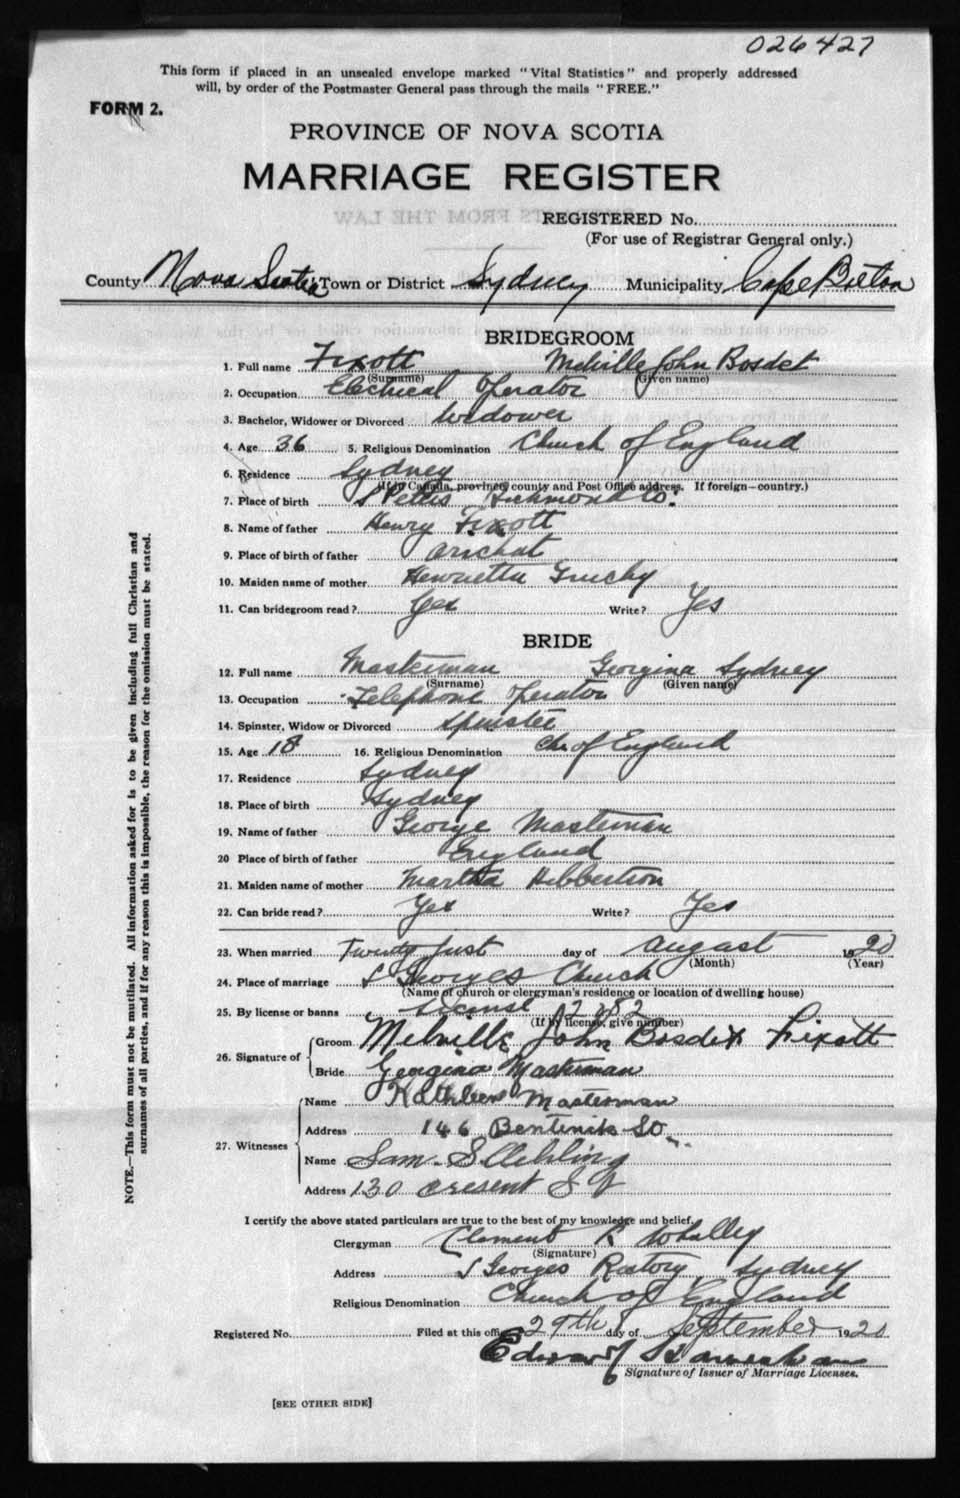 026427
This form if placed in an unsealed envelope marked "Vital Statistics" and properly addressed
will, by order of the Postmaster General pass through the mails "FREE."
FORM 2.
PROVINCE OF NOVA SCOTIA
MARRIAGE REGISTER
REGISTERED No.
(For use of Registrar General only.)
County Nova Scotia Town or District Sydney Municipality Cape Breton
BRIDEGROOM
1. Full name Fixott Melville John Bosdet
(Surname) (Given name)
2. Occupation Electrical Operator
3. Bachelor, Widower or Divorced Widower
4. Age 36 5. Religious Denomination Church of England
6. Residence Sydney
(If in Canada, province, county and Post Office address. If foreign—country.)
7. Place of birth St Peters Richmond Co.
8. Name of father Henry Fixott
9. Place of birth of father Arichat
10. Maiden name of mother Henrietta Gruchy
11. Can bridegroom read? Yes Write? Yes
BRIDE
12. Full name Masterman Georgina Sydney
(Surname) (Given name)
13. Occupation Telephone Operator
14. Spinster, Widow or Divorced Spinster
15. Age 18 16. Religious Denomination Ch. of England
17. Residence Sydney
18. Place of birth Sydney
19. Name of father George Masterman
20 Place of birth of father England
21. Maiden name of mother Martha Hibbertson
22. Can bride read? Yes Write? Yes
23. When married Twenty first day of August 1920
(Month) (Year)
24. Place of marriage St Georges Church
(Name of church or clergyman's residence or location of dwelling house)
25. By license or banns License
(If by license, give number)
26. Signature of Groom Melville John Bosdet Fixott
Bride Georgina Masterman
27. Witnesses Name Kathleen Masterman
Address 146 Bentinck St.
Name Sam.
Address 130 Cresent St
I certify the above stated particulars are true to the best of my knowledge and belief.
Clergyman Clement R Whalley
(Signature)
Address St Georges Rectory Sydney
Religious Denomination Church of England
Registered No. Filed at this office 29th day of September 1920
Edward
Signature of Issuer of Marriage Licenses.
[SEE OTHER SIDE]
NOTE.—This form must not be mutilated. All information asked for is to be given including full Christian and
surnames of all parties, and if for any reason this is impossible, the reason for the omission must be stated.